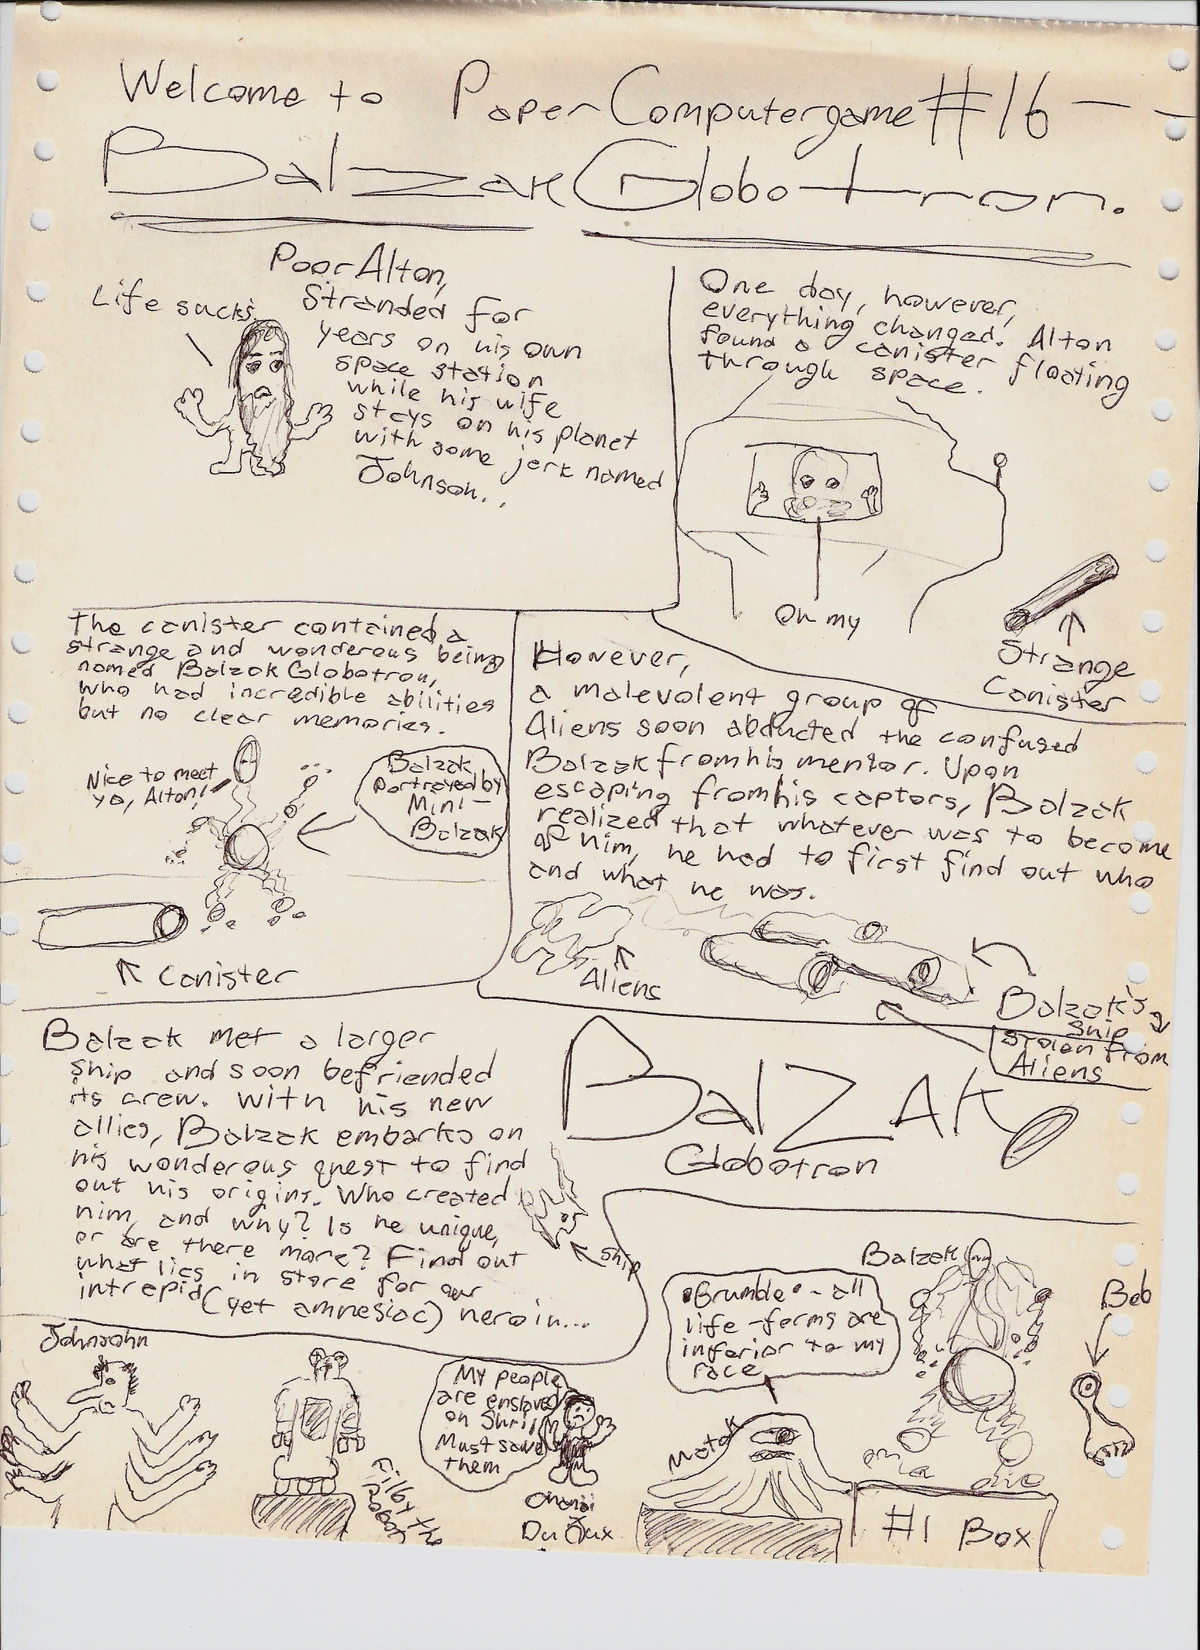 Welcome to Paper Computergame #16 - -
Balzak Globotron.
Poor Alton,
Stranded for
years on his own
space station
while his wife
stays on his planet
with some jerk named
Johnson...
Life sucks
One day, however,
everything changed. Alton
found a canister floating
through space.
Oh my
Strange
Canister
The canister contained a
strange and wonderous being
named Balzak Globotron,
who had incredible abilities
but no clear memories.
Nice to meet
ya, Alton!
...
Balzak
Portrayed by
Mini-
Balzak
Canister
However,
a malevolent group of
Aliens soon abducted the confused
Balzak from his mentor. Upon
escaping from his captors, Balzak
realized that whatever was to become
of him, he had to first find out who
and what he was.
Aliens
Balzak's
Ship
Stolen from
Aliens
Balzak met a larger
ship and soon befriended
its crew. With his new
allies, Balzak embarks on
his wonderous quest to find
out his origins. Who created
him, and why? Is he unique,
or are there more? Find out
what lies in store for our
intrepid (yet amnesiac) heroin...
BalZAK
Globotron
Ship
Johnsohn
Filby the
Robot
My people
are enslaved
on
Must save
them
Du
Matok
•Grumble• - all
life-forms are
inferior to my
race
Balzak
Bob
#1 Box